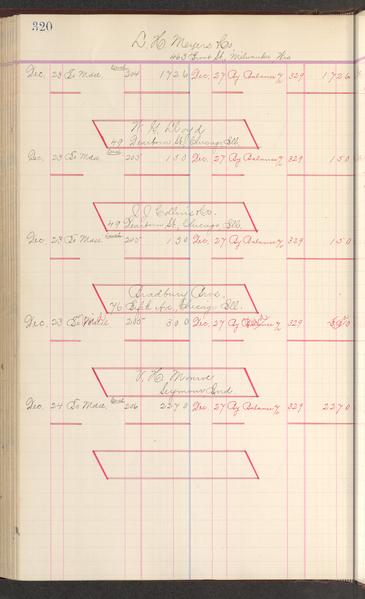 320
D. H. Meyers Co.
463 Front St, Milwaukee Wis
Dec. 23 To Mdse 204 1726 Dec. 27 By Balance 329 1726
W. H. Lloyd
49 Dearborn St, Chicago Ill.
Dec. 23 To Mdse 205 150 Dec. 27 By Balance 329 150
J. J. Collins Co.
49 Dearborn St, Chicago Ill.
Dec. 23 To Mdse 205 150 Dec. 27 By Balance 329 150
Bradbury Bros.
76 Fifth Ave, Chicago Ill.
Dec. 23 To Mdse 205 300 Dec. 27 By 329
V. H. Monroe
Seymour Ind
Dec. 24 To Mdse 206 2270 Dec. 27 By Balance 329 2270